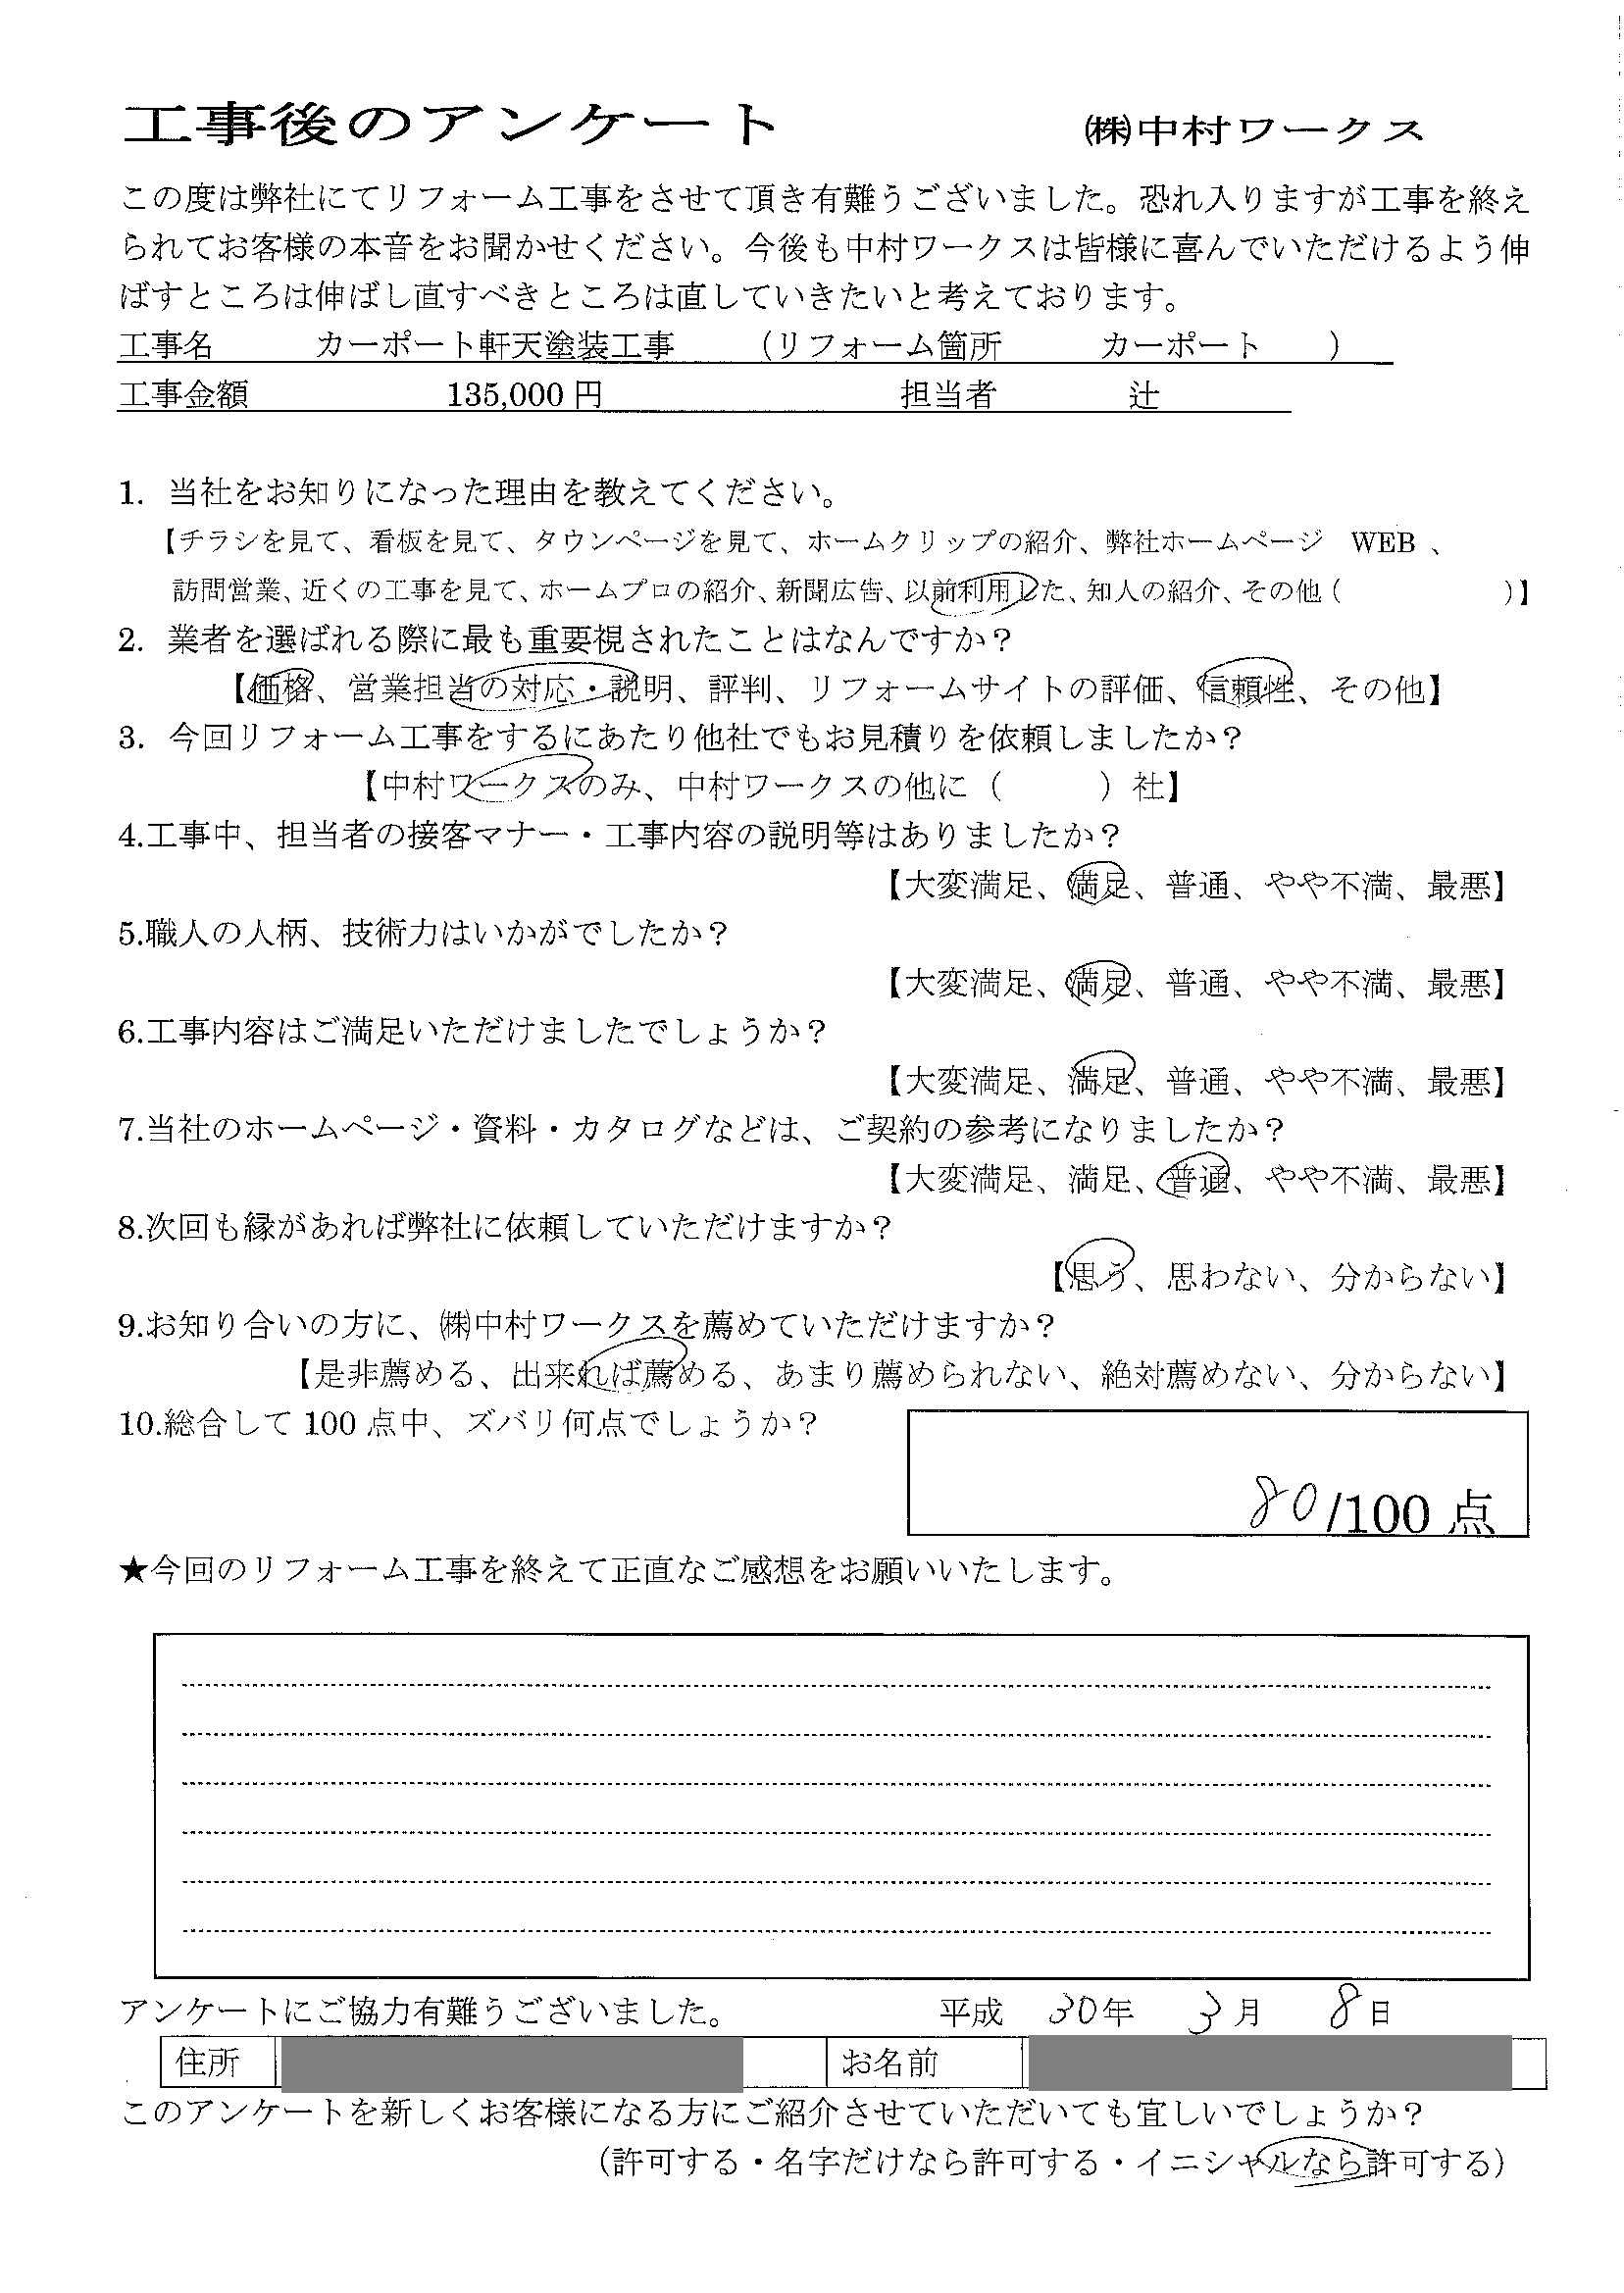 工事後のアンケート ㈱中村ワークス
この度は弊社にてリフォーム工事をさせて頂き有難うございました。恐れ入りますが工事を終え
られてお客様の本音をお聞かせください。今後も中村ワークスは皆様に喜んでいただけるよう伸
ばすところは伸ばし直すべきところは直していきたいと考えております。
工事名 カーポート軒天塗装工事 （リフォーム箇所 カーポート ）
工事金額 135,000 円 担当者 辻
1. 当社をお知りになった理由を教えてください。
【チラシを見て、看板を見て、タウンページを見て、ホームクリップの紹介、弊社ホームページ WEB 、
訪問営業、近くの工事を見て、ホームプロの紹介、新聞広告、以前利用した、知人の紹介、その他（ ）】
2. 業者を選ばれる際に最も重要視されたことはなんですか？
【価格、営業担当の対応・説明、評判、リフォームサイトの評価、信頼性、その他】
3. 今回リフォーム工事をするにあたり他社でもお見積りを依頼しましたか？
【中村ワークスのみ、中村ワークスの他に（ ）社】
4.工事中、担当者の接客マナー・工事内容の説明等はありましたか？
【大変満足、満足、普通、やや不満、最悪】
5.職人の人柄、技術力はいかがでしたか？
【大変満足、満足、普通、やや不満、最悪】
6.工事内容はご満足いただけましたでしょうか？
【大変満足、満足、普通、やや不満、最悪】
7.当社のホームページ・資料・カタログなどは、ご契約の参考になりましたか？
【大変満足、満足、普通、やや不満、最悪】
8.次回も縁があれば弊社に依頼していただけますか？
【思う、思わない、分からない】
9.お知り合いの方に、㈱中村ワークスを薦めていただけますか？
【是非薦める、出来れば薦める、あまり薦められない、絶対薦めない、分からない】
10.総合して 100 点中、ズバリ何点でしょうか？
80/100 点
★今回のリフォーム工事を終えて正直なご感想をお願いいたします。
アンケートにご協力有難うございました。 平成 30年 3月 8日
住所 お名前
このアンケートを新しくお客様になる方にご紹介させていただいても宜しいでしょうか？
（許可する・名字だけなら許可する・イニシャルなら許可する）